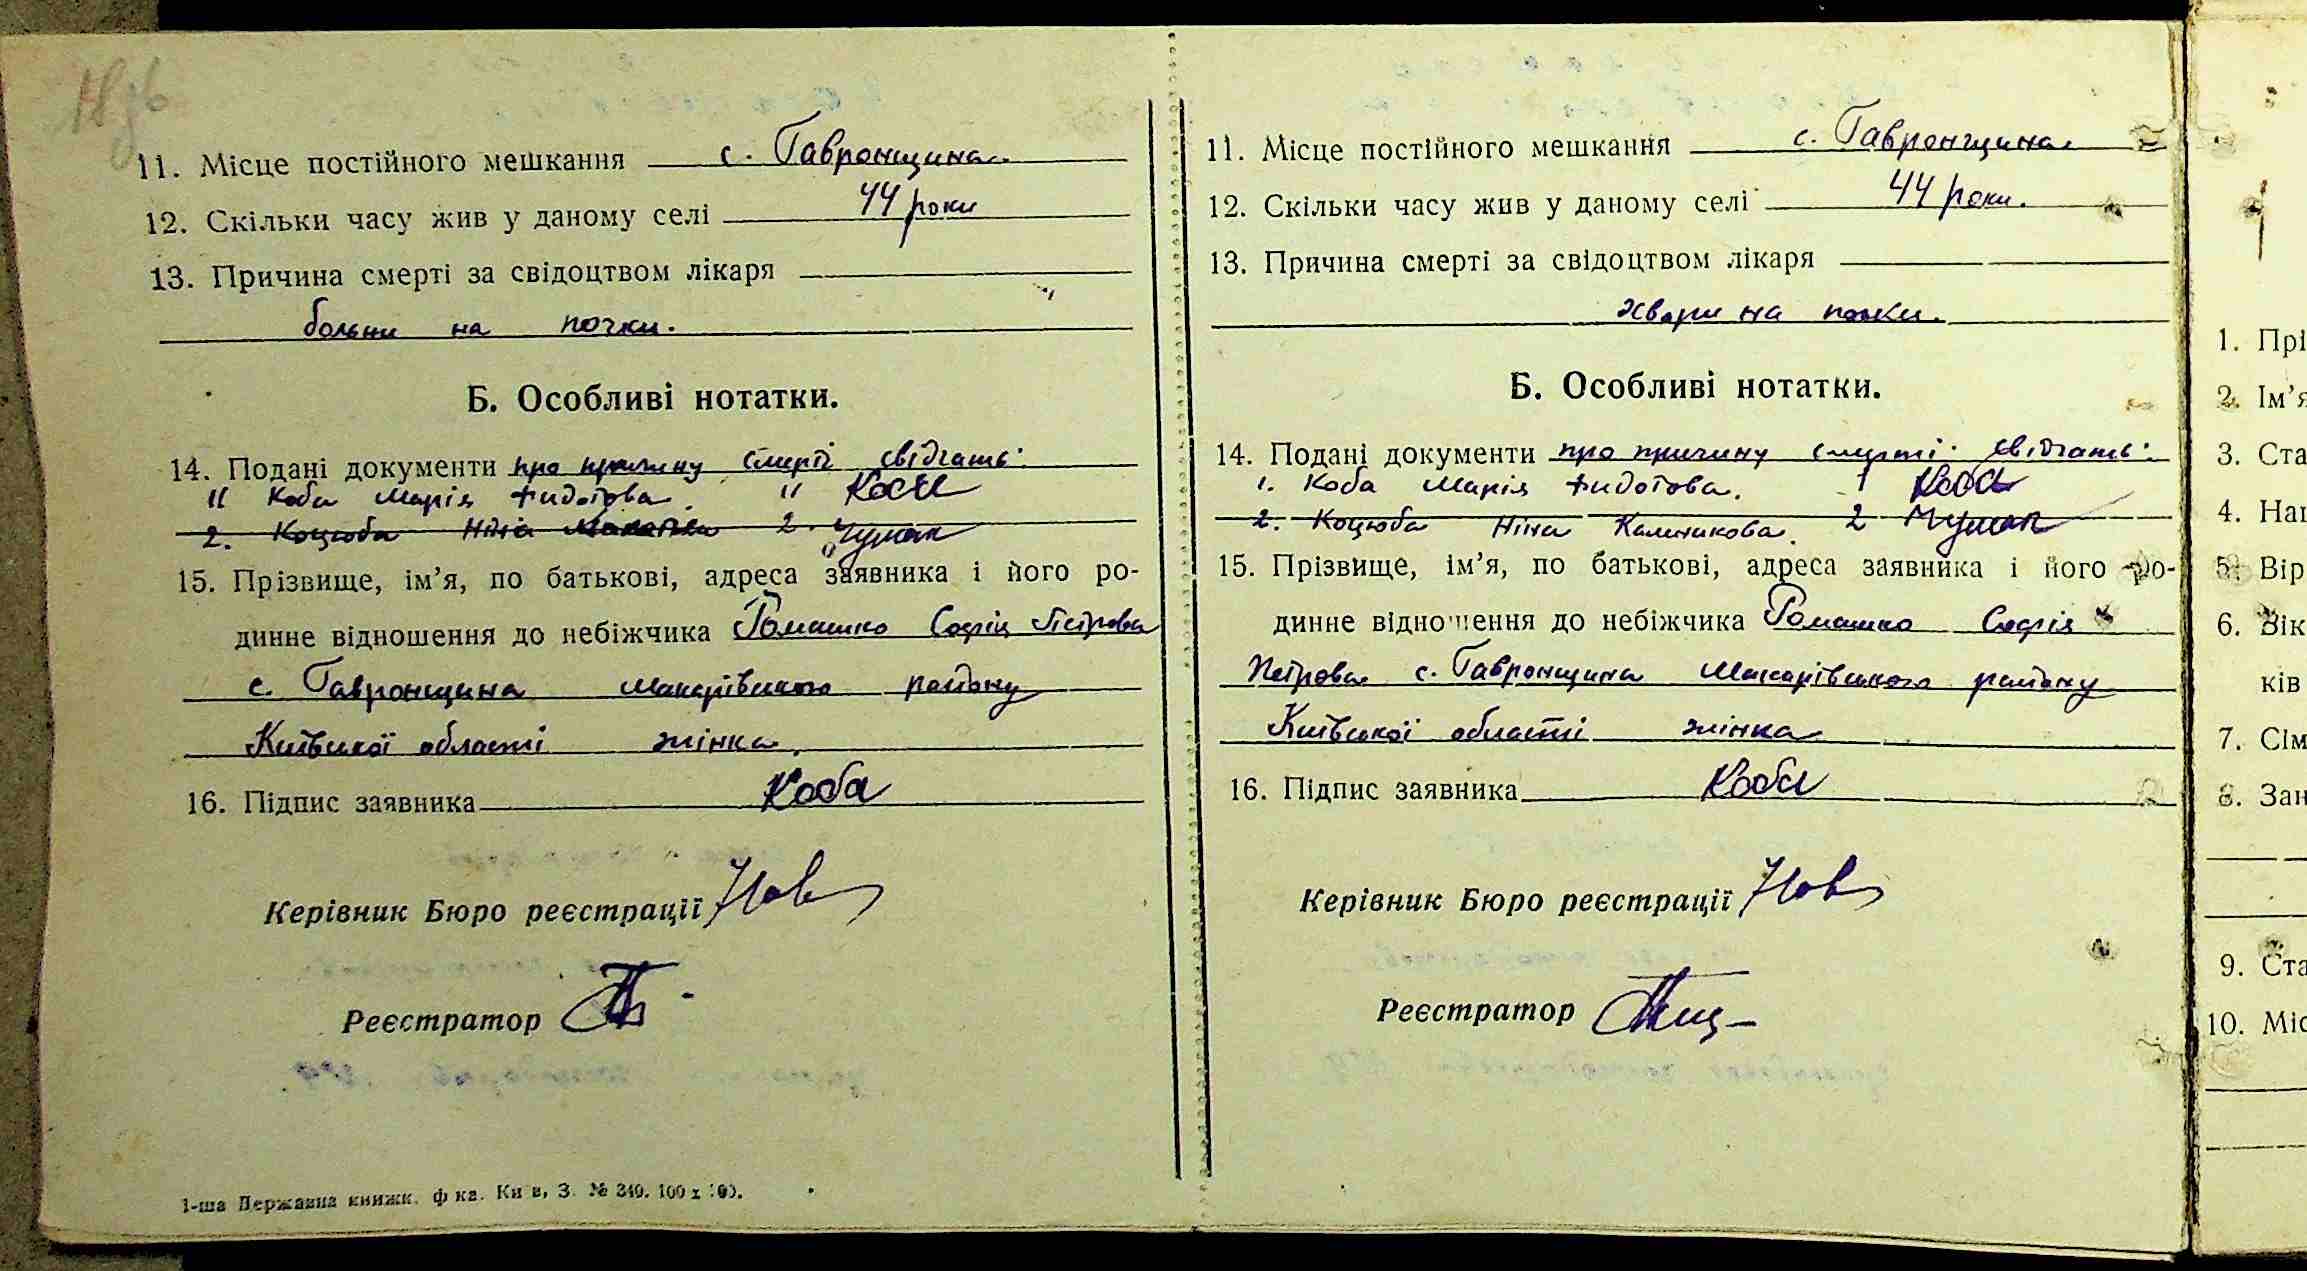 11. Місце постійного мешкання с. Гавронщина.
12. Скільки часу жив у даному селі 44 роки
13. Причина смерті за свідоцтвом лікаря
больни на почки.
Б. Особливі нотатки.
14. Подані документи про причину смерті свідчать:
Коба Марія Фидотова.
2. Коцюба Ніна 2. Чумак
15. Прізвище, ім’я, по батькові, адреса заявника і його ро-
динне відношення до небіжчика Ромашко Софія Петрова
с. Гавронщина Макарівського району
Київської області жінка.
16. Підпис заявника Коба
Керівник Бюро реєстрації
Реєстратор
1-ша Державна книжк. ф ка. Ки в, З. № 340. 100 х
11. Місце постійного мешкання с. Гавронщина.
12. Скільки часу жив у даному селі 44 роки.
13. Причина смерті за свідоцтвом лікаря
хвори на почки.
Б. Особливі нотатки.
14. Подані документи про причину смерті свідчать:
1. Коба Марія Фидотова. 1 Коба
2. Коцюба Ніна Калиникова. 2 Чумак
15. Прізвище, ім’я, по батькові, адреса заявника і його ро-
динне відношення до небіжчика Ромашко Софія
Петрова с. Гавронщина Макарівського району
Київської області жінка
16. Підпис заявника Коба
Керівник Бюро реєстрації
Реєстратор
1. Прі
2. Ім’я
3. Ста
4. Нац
5. Вір
6. Вік
ків
7. Сім
8. Зан
9. Ста
10. Міс